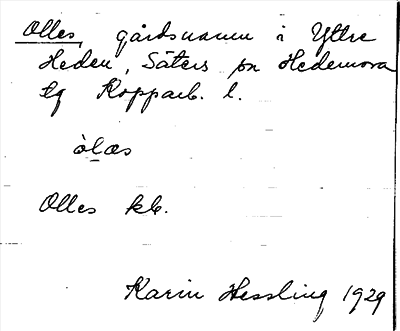 Olles, gårdsnamn i Yttre
Heden, Säters sn Hedemora
tg Kopparb. l.
òlæs
Olles kb.
Karin Hessling 1929